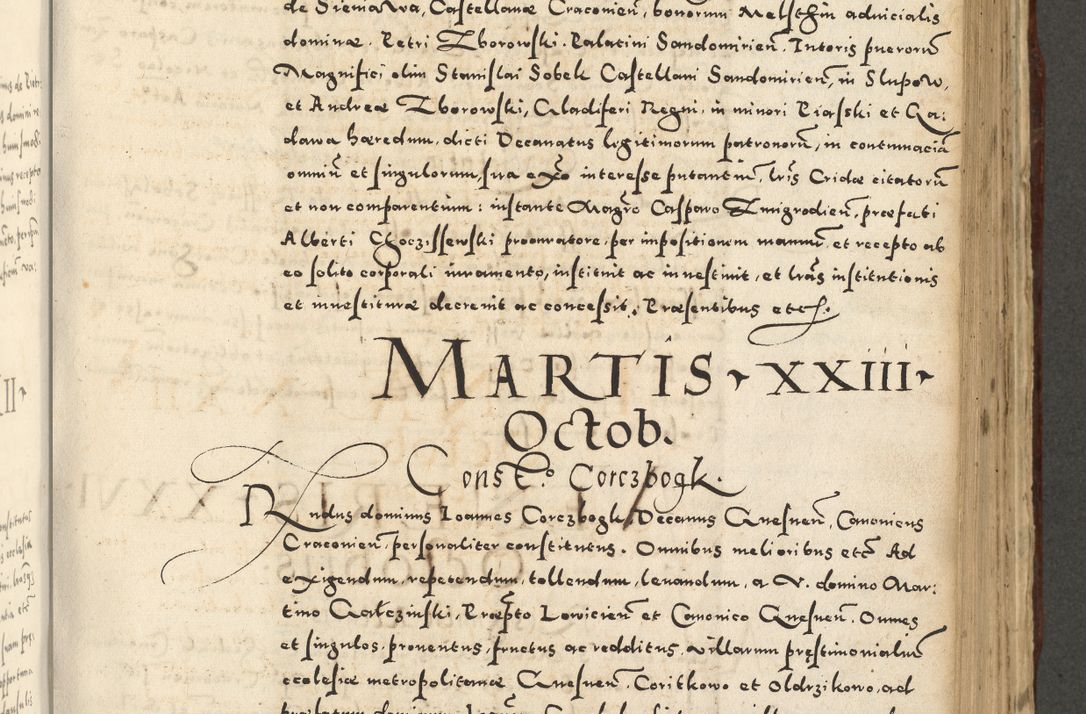 de Sienawa, Castellanæ Craconien̄, bonorum Melsthin advicialis
dominæ. Petri Zborowski. Palatini Sandomirien̄. Tutoris puerorū
Magnifici olim Stanislai Sobek Castellani Sandomirien̄, in Slupow,
et Andreæ Zborowski, Gladiferi Regni, in minori Piaski et Ga:
dawa hæredum, dicti Decanatus legitimorum patronorū, in contumaciā
omniū et singulorum, sua exō interesse putantiūm, lrīs Cridæ citatorū
et non comparentium: instante Magrō Casparo Zmigrodien̄, præfati
Alberti Choczissewski procuratore, per impositionem manuū, et recepto ab
eo solito corporali iuramento, instituit ac inuestiuit, et lrās institutionis
et inuestituræ decreuit ac concessit. Præsentibus etc.
MARTIS XXIIII
Octob.
Const.o Corczbogk.
Rndus dominus Ioannes Corczbogk Decanus Gnesnen̄, Canonicus
Craconien̄, personaliter constitutus. Omnibus melioribus etc̄ Ad
exigendum, repetendum, tollendum, leuandum, a V. domino Mar:
tino Gałczinski, Præpto Louicien̄ et Canonico Gnesnen̄. Omnes
et singulos, prouentus, fructus ac redditus, villarum præstimonialiū
ecclesiæ metropolitanæ Gnesnen̄. Coritkowo et Oldrzikowo, ad